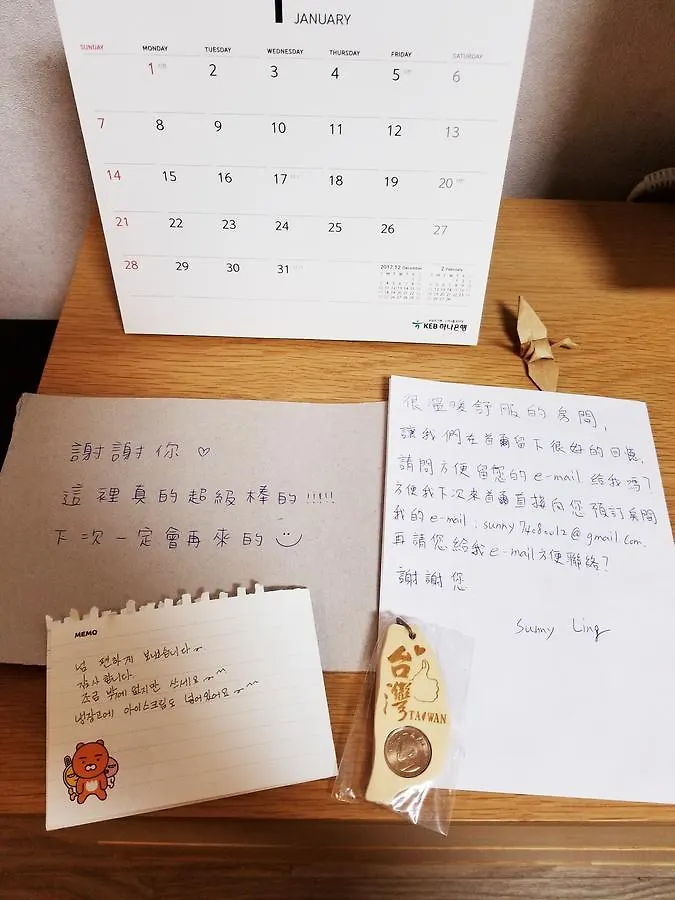 1 JANUARY
SUNDAY MONDAY TUESDAY WEDNESDAY THURSDAY FRIDAY SATURDAY
1 2 3 4 5 6
7 8 9 10 11 12 13
14 15 16 17 18 19 20
21 22 23 24 25 26 27
28 29 30 31
2017.12 December 2 February
KEB 하나은행
謝謝你♡
這裡真的超級棒的!!!!!
下次一定會再來的
很溫暖舒服的房間,
讓我們在首爾留下很好的回憶,
請問方便留您的e-mail給我嗎?
方便我下次來首爾直接向您預訂房間
我的e-mail:sunny74082012@gmail.com.
再請您給我e-mail方便聯絡?
謝謝您
Sunny Ling
MEMO
넘 편하게 보냈습니다~
감사합니다.
조금 밖에 없지만 쓰세요~^^
냉장고에 아이스크림도 넣어있어요~^^
台灣
TAIWAN